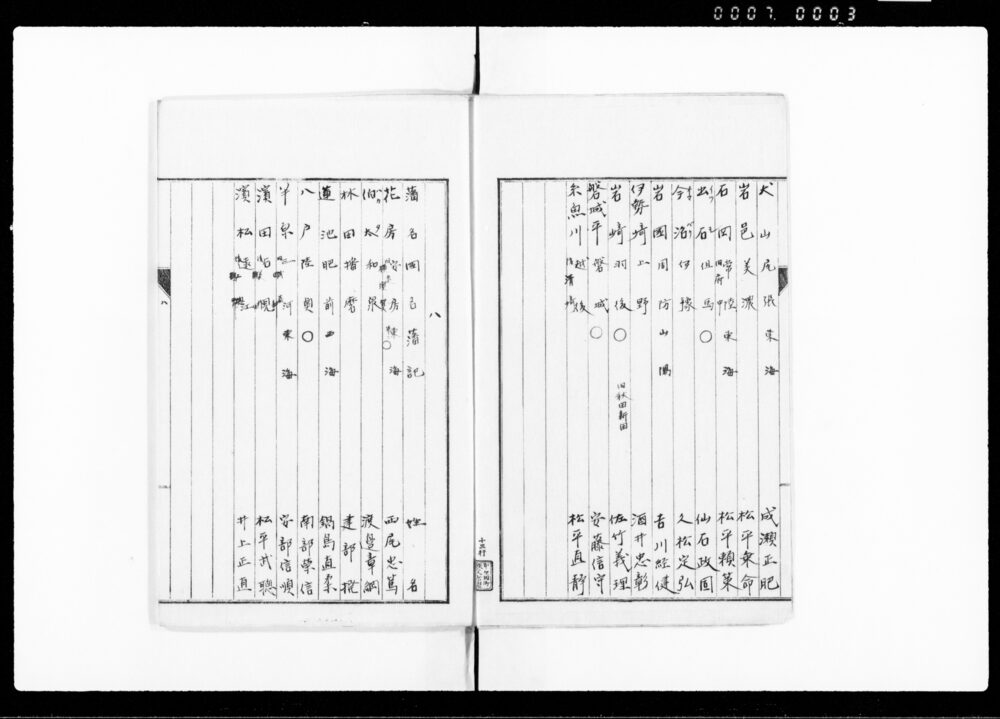 0007 0003
犬山 尾張 東海 成瀬正肥
岩邑 美濃 松平乗命
石岡 常陸 旧府中 東海 松平頼策
出石 但馬 〇 仙石政固
今治 伊豫 久松定弘
岩国 周防 山陽 吉川経健
伊勢崎 上野 酒井忠彰
岩崎 羽後 〇 旧秋田新田 佐竹義理
磐城平 磐城 〇 安藤信守
糸魚川 越後 旧清崎 松平直静
八
藩名 国名 藩記 姓名
花房 安房 東海 〇 西尾忠篤
伯太 和泉 渡邉章綱
林田 播磨 建部
蓮池 肥前 西海 鍋島直柔
八戸 陸奥 〇 南部栄信
半原 三河 東海 安部信順
濱田 石見 松平武聰
濱松 遠江 井上正直
八
十三行